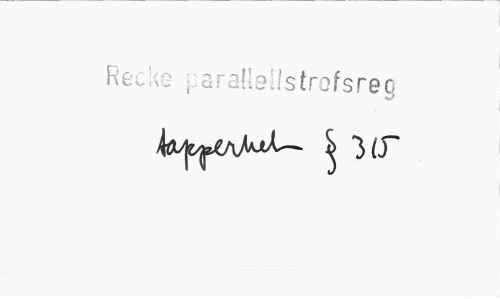 Recke parallellstrofsreg
tapperhet § 315